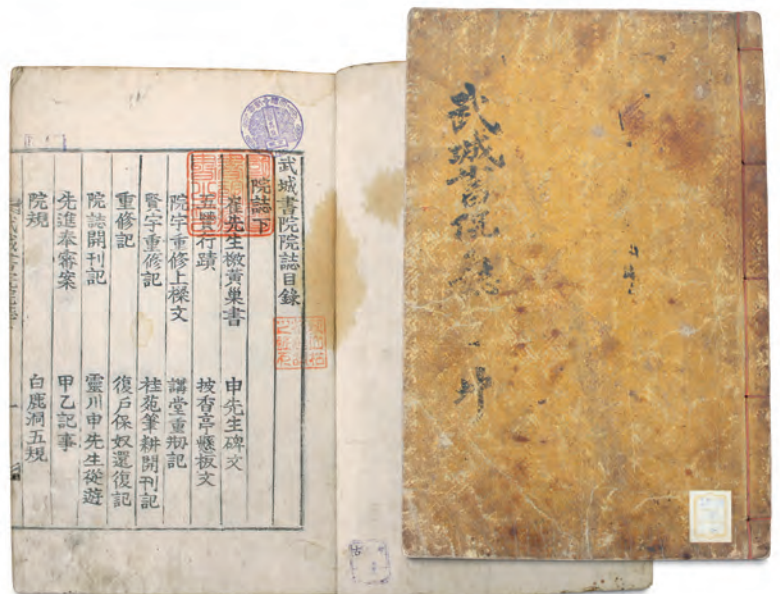 武城書院院誌目錄
院誌下
崔先生檄黃巢書 申先生碑文
五賢行蹟 披香亭懸板文
院宇重修上樑文 講堂重刱記
賢宇重修記 桂苑筆耕開刊記
重修記 復戶保奴還復記
院誌開刊記 靈川申先生從遊
先進奉審案 甲乙記事
院規 白鹿洞五規
武城書院誌